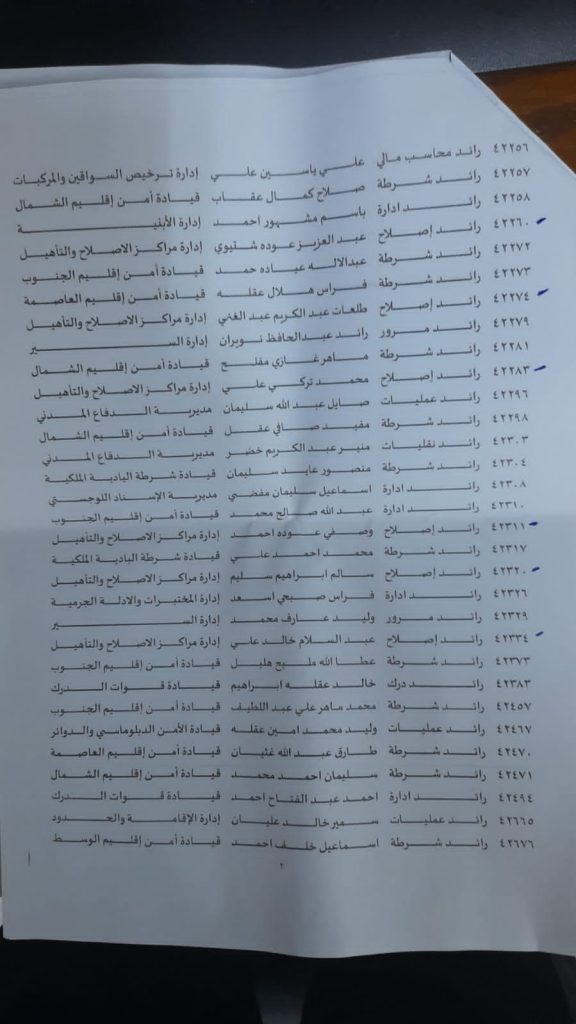 ٤٢٢٥٦ رائد محاسب مالي علي ياسين علي إدارة ترخيص السواقين والمركبات
٤٢٢٥٧ رائد شرطة صلاح كمال عقاب قيادة أمن إقليم الشمال
٤٢٢٥٨ رائد ادارة باسم مشهور احمد إدارة الأبنية
٤٢٢٦٠ رائد إصلاح عبد العزيز عوده شتيوي إدارة مراكز الاصلاح والتأهيل
٤٢٢٧٢ رائد شرطة عبدالاله عياده حمد قيادة أمن إقليم الجنوب
٤٢٢٧٣ رائد شرطة فراس هلال عقله قيادة أمن إقليم العاصمة
٤٢٢٧٤ رائد إصلاح طلعات عبد الكريم عبد الغني إدارة مراكز الاصلاح والتأهيل
٤٢٢٧٩ رائد مرور رائد عبدالحافظ نويران إدارة السير
٤٢٢٨١ رائد شرطة ماهر غازي مفلح قيادة أمن إقليم الشمال
٤٢٢٨٣ رائد إصلاح محمد تركي علي إدارة مراكز الاصلاح والتأهيل
٤٢٢٩٦ رائد عمليات صايل عبد الله سليمان مديرية الدفاع المدني
٤٢٢٩٨ رائد شرطة مفيد صافي عقل قيادة أمن إقليم الشمال
٤٢٣٠٣ رائد نقليات منير عبد الكريم خضر مديرية الدفاع المدني
٤٢٣٠٤ رائد شرطة منصور عايد سليمان قيادة شرطة البادية الملكية
٤٢٣٠٨ رائد ادارة اسماعيل سليمان مفضي مديرية الإسناد اللوجستي
٤٢٣١٠ رائد ادارة عبد الله صالح محمد قيادة أمن إقليم الجنوب
٤٢٣١١ رائد إصلاح وصفي عوده احمد إدارة مراكز الاصلاح والتأهيل
٤٢٣١٧ رائد شرطة محمد احمد علي قيادة شرطة البادية الملكية
٤٢٣٢٠ رائد إصلاح سالم ابراهيم سليم إدارة مراكز الاصلاح والتأهيل
٤٢٣٢٦ رائد ادارة فراس صبحي اسعد إدارة المختبرات والادلة الجرمية
٤٢٣٢٩ رائد مرور وليد عارف محمد إدارة السير
٤٢٣٣٤ رائد إصلاح عبد السلام خالد علي إدارة مراكز الاصلاح والتأهيل
٤٢٣٧٣ رائد شرطة عطا الله مليح هليل قيادة أمن إقليم الجنوب
٤٢٣٨٣ رائد درك خالد عقله ابراهيم قيادة قوات الدرك
٤٢٤٥٧ رائد شرطة محمد ماهر علي عبد اللطيف قيادة أمن إقليم الجنوب
٤٢٤٦٧ رائد عمليات وليد محمد امين عقله قيادة الأمن الدبلوماسي والدوائر
٤٢٤٧٠ رائد شرطة طارق عبد الله غثيان قيادة أمن إقليم العاصمة
٤٢٤٧١ رائد شرطة سليمان احمد محمد قيادة أمن إقليم الشمال
٤٢٤٩٤ رائد ادارة احمد عبد الفتاح احمد قيادة قوات الدرك
٤٢٦٦٥ رائد عمليات سمير خالد عليان إدارة الإقامة والحدود
٤٢٦٧٦ رائد شرطة اسماعيل خلف احمد قيادة أمن إقليم الوسط
٢